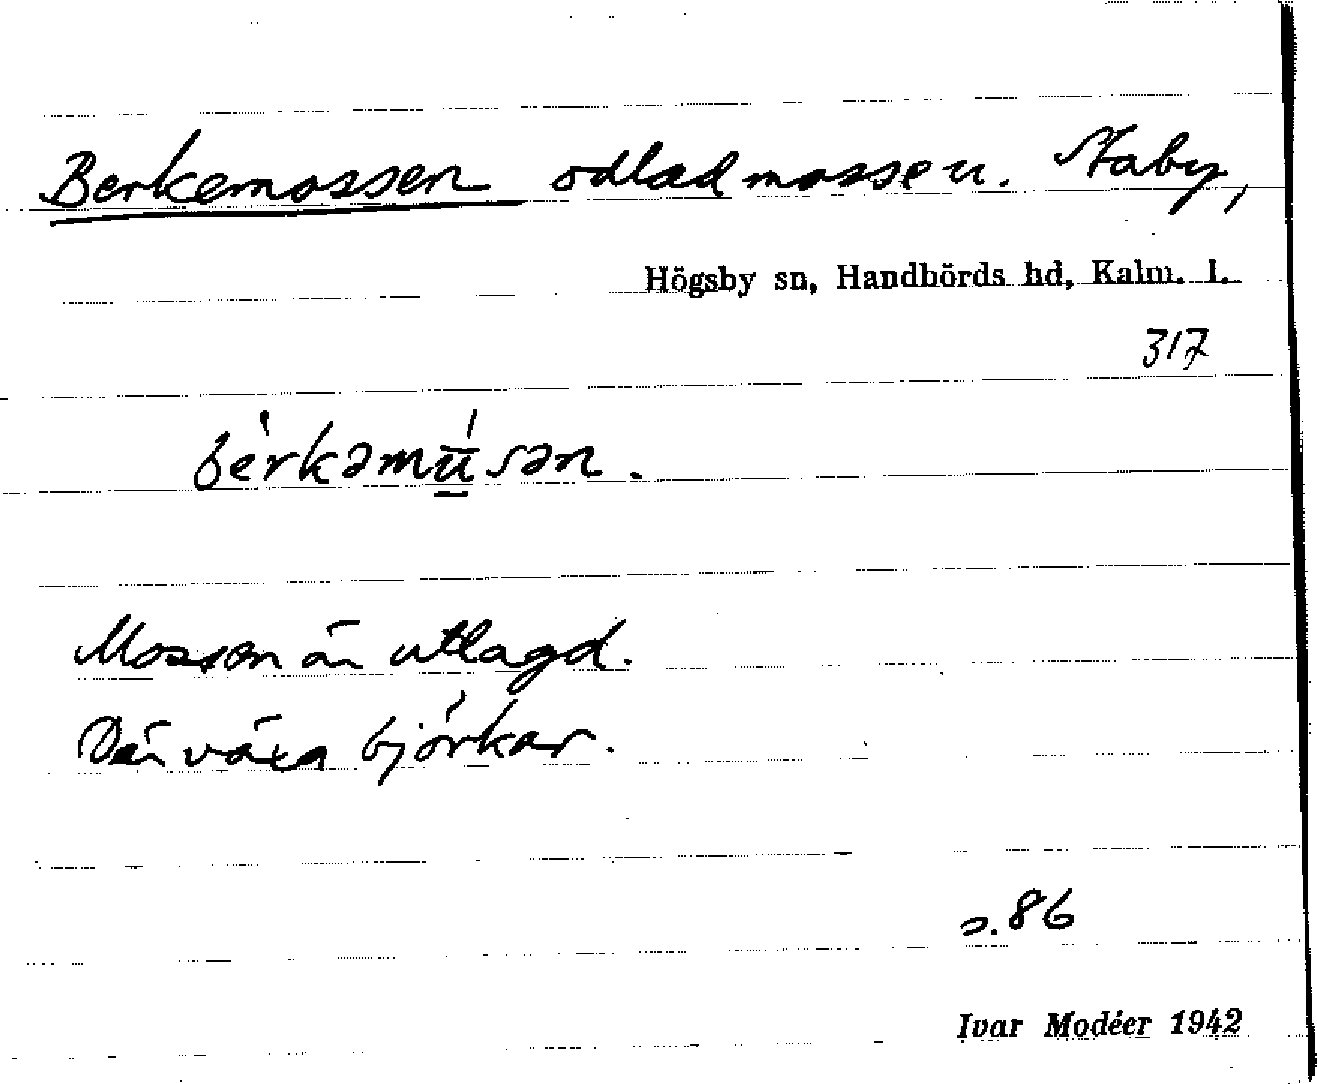 Berkemossen odlad mossen. Staby,
Högsby sn, Handbörds hd, Kalm. l.
317
bèrkəmū́sən.
Mossen är utlagd.
Där växa björkar.
s. 86
Ivar Modéer 1942